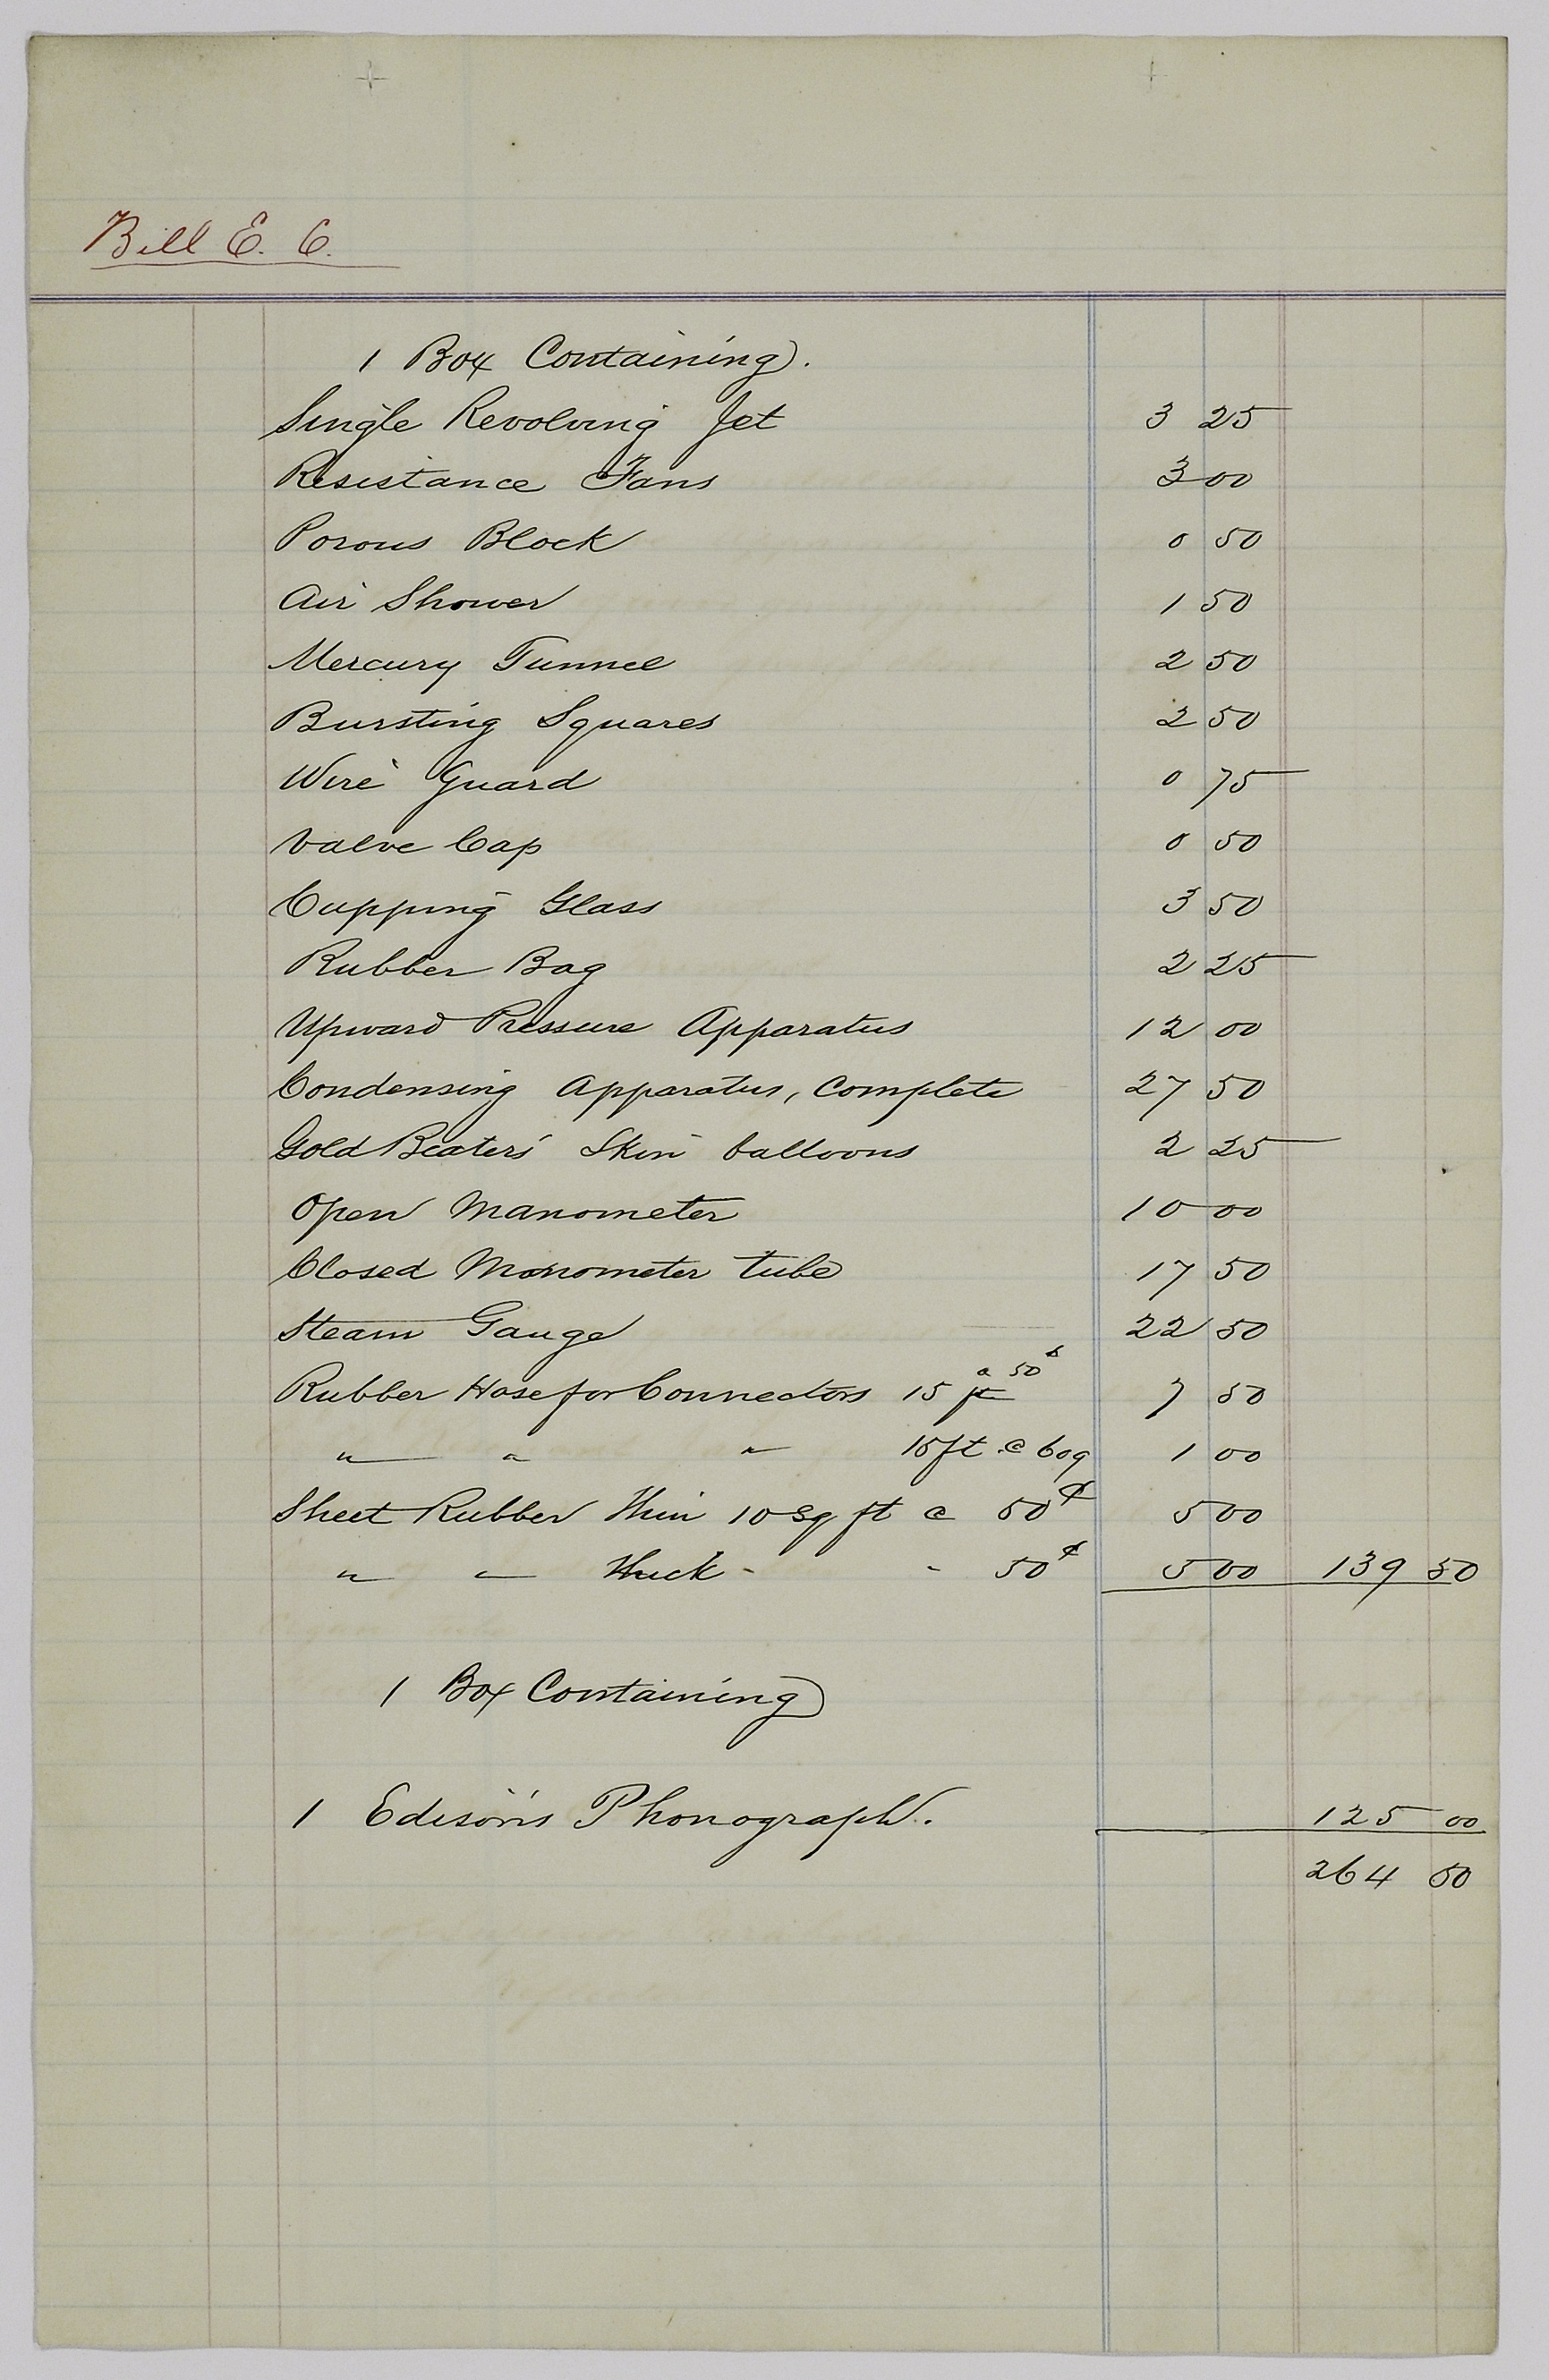 Bill E. C.
1 Box Containing.
Single Revolving Jet 3 25
Resistance Fans 3 00
Porous Block 0 50
Air Shower 1 50
Mercury Tunnel 2 50
Bursting Squares 2 50
Wire Guard 0 75
Valve Cap 0 50
Cupping Glass 3 50
Rubber Bag 2 25
Upward Pressure Apparatus 12 00
Condensing Apparatus, Complete 27 50
Gold Beaters' Skin balloons 2 25
Open Manometer 10 00
Closed Manometer tube 17 50
Steam Gauge 22 50
Rubber Hose for Connectors 15 ft a 50¢ 7 50
" " " 15 ft @ 1 00
Sheet Rubber Thin 10 sq ft @ 50¢ 5 00
" " Thick - - 50¢ 5 00 139 50
1 Box Containing
1 Edison's Phonograph. 125 00
264 50